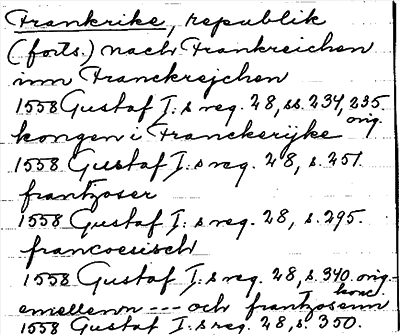 Frankrike, republik
(forts.) nach Frankreichen
inn Franckrejchen
1558 Gustaf I:s reg. 28, ss. 234, 235.
orig.
kongen i Franckerijke
1558 Gustaf I:s reg. 28, s. 251.
frantzoser
1558 Gustaf I:s reg. 28, s. 295.
francoesisch
1558 Gustaf I:s reg. 28, s. 340. orig.
konc.
emellenn --- och frantzosenn
1558 Gustaf I:s reg. 28, s. 350.